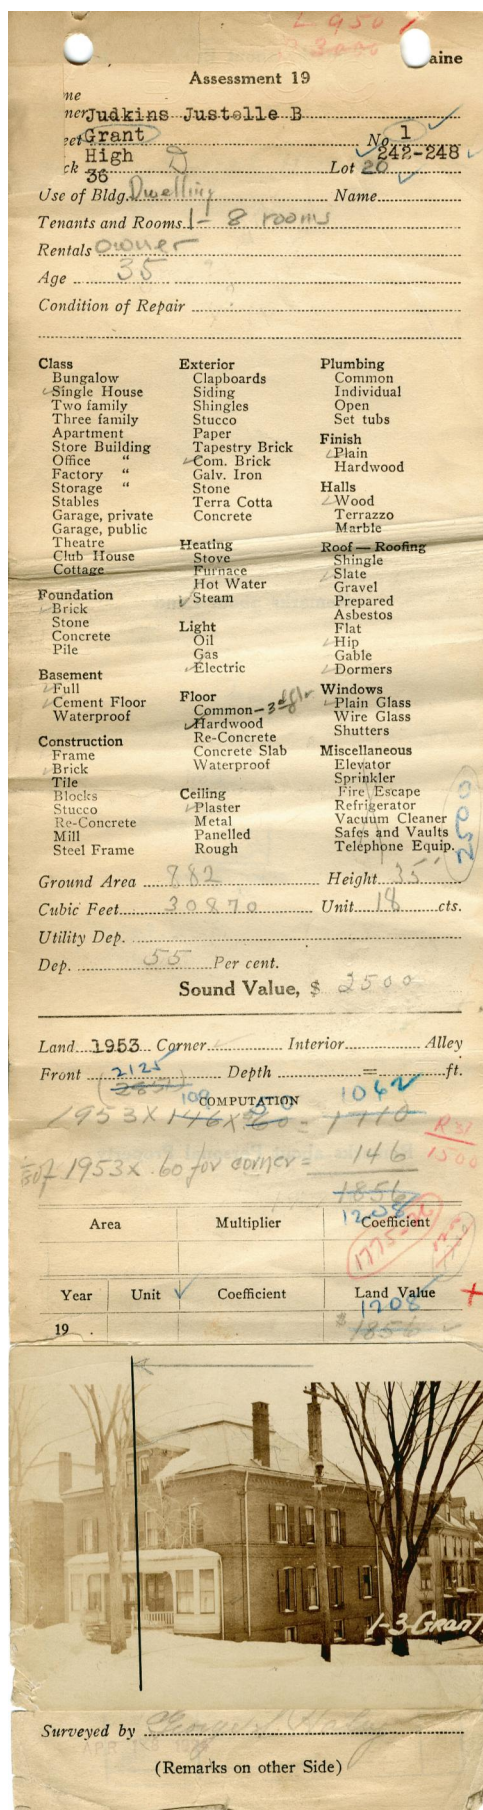 L 950
3000
aine
Assessment 19
me
ner Judkins Justelle B
eet Grant No. 1
High 242-248
ck 36 D Lot 20
Use of Bldg. Dwelling Name
Tenants and Rooms 1- 8 rooms
Rentals owner
Age 35
Condition of Repair
Class
Bungalow
Single House
Two family
Three family
Apartment
Store Building
Office "
Factory "
Storage "
Stables
Garage, private
Garage, public
Theatre
Club House
Cottage
Foundation
Brick
Stone
Concrete
Pile
Basement
Full
Cement Floor
Waterproof
Construction
Frame
Brick
Tile
Blocks
Stucco
Re-Concrete
Mill
Steel Frame
Exterior
Clapboards
Siding
Shingles
Stucco
Paper
Tapestry Brick
Com. Brick
Galv. Iron
Stone
Terra Cotta
Concrete
Heating
Stove
Furnace
Hot Water
Steam
Light
Oil
Gas
Electric
Floor
Common - 3d flr
Hardwood
Re-Concrete
Concrete Slab
Waterproof
Ceiling
Plaster
Metal
Panelled
Rough
Plumbing
Common
Individual
Open
Set tubs
Finish
Plain
Hardwood
Halls
Wood
Terrazzo
Marble
Roof — Roofing
Shingle
Slate
Gravel
Prepared
Asbestos
Flat
Hip
Gable
Dormers
Windows
Plain Glass
Wire Glass
Shutters
Miscellaneous
Elevator
Sprinkler
Fire Escape
Refrigerator
Vacuum Cleaner
Safes and Vaults
Telephone Equip.
2500
Ground Area 882 Height 35'
Cubic Feet 30870 Unit 18 cts.
Utility Dep.
Dep. 55 Per cent.
Sound Value, $ 2500
Land 1953 Corner Interior Alley
2125
Front Depth = ft.
108 1062
COMPUTATION
1953 X 146 X 60 = 1710
1500
of 1953 X .60 for corner = 146
1856
1208
Area Multiplier Coefficient
1775
Year Unit Coefficient Land Value
1208
19 $ 1856
1-3-Grant
Surveyed by
(Remarks on other Side)